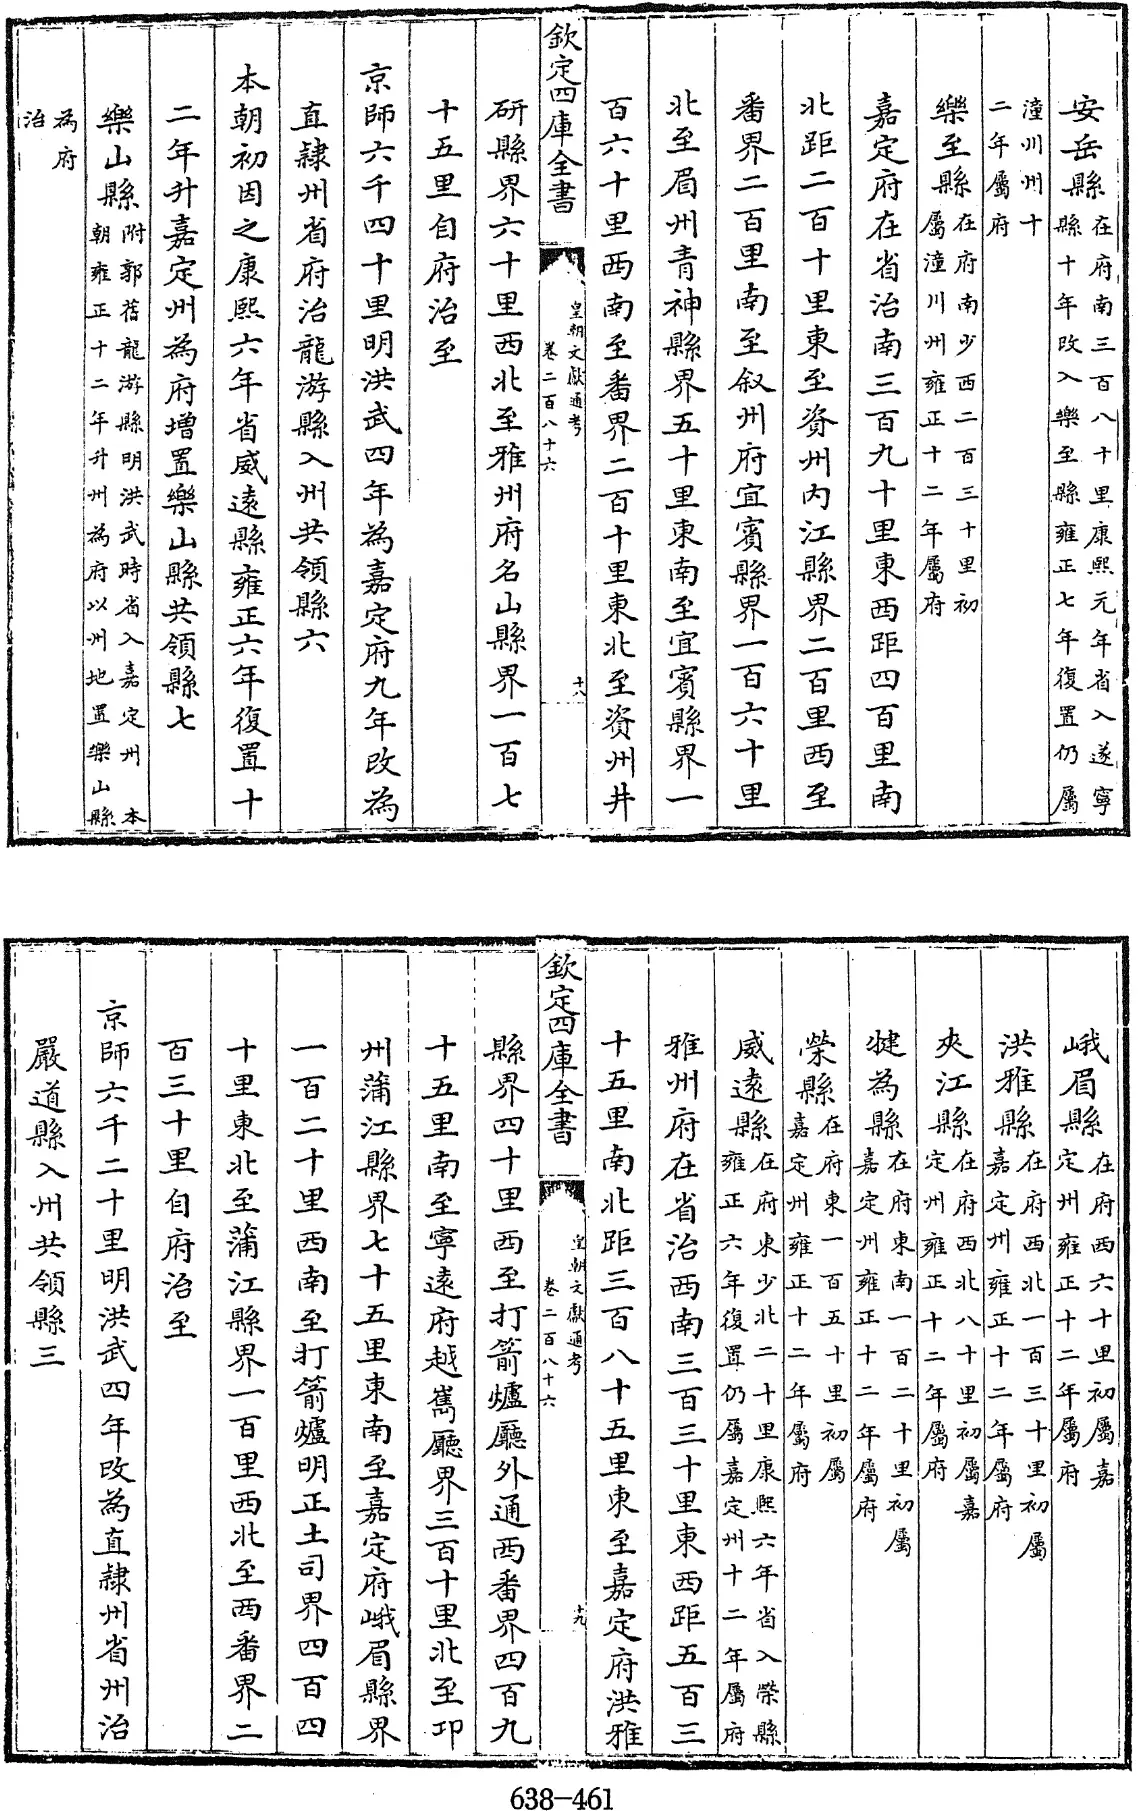 安岳縣在府南三百八十里康熙元年省入遂寧
縣十年改入樂至縣雍正七年復置仍屬
潼川州十
二年屬府
樂至縣在府南少西二百三十里初
屬潼川州雍正十二年屬府
嘉定府在省治南三百九十里東西距四百里南
北距二百十里東至資州内江縣界二百里西至
番界二百里南至叙州府宜賓縣界一百六十里
北至眉州青神縣界五十里東南至宜賓縣界一
百六十里西南至番界二百十里東北至資州井
欽定四庫全書
皇朝文獻通考
卷二百八十六
十八
研縣界六十里西北至雅州府名山縣界一百七
十五里自府治至
京師六千四十里明洪武四年為嘉定府九年改為
直隸州省府治龍游縣入州共領縣六
本朝初因之康熙六年省威遠縣雍正六年復置十
二年升嘉定州為府增置樂山縣共領縣七
樂山縣附郭舊龍游縣明洪武時省入嘉定州本
朝雍正十二年升州為府以州地置樂山縣
為府
治
峨眉縣在府西六十里初屬嘉
定州雍正十二年屬府
洪雅縣在府西北一百三十里初屬
嘉定州雍正十二年屬府
夾江縣在府西北八十里初屬嘉
定州雍正十二年屬府
犍為縣在府東南一百二十里初屬
嘉定州雍正十二年屬府
榮縣在府東一百五十里初屬
嘉定州雍正十二年屬府
威遠縣在府東少北二十里康熙六年省入榮縣
雍正六年復置仍屬嘉定州十二年屬府
雅州府在省治西南三百三十里東西距五百三
十五里南北距三百八十五里東至嘉定府洪雅
欽定四庫全書
皇朝文獻通考
卷二百八十六
十九
縣界四十里西至打箭爐廳外通西番界四百九
十五里南至寧遠府越嶲廳界三百十里北至邛
州蒲江縣界七十五里東南至嘉定府峨眉縣界
一百二十里西南至打箭爐明正土司界四百四
十里東北至蒲江縣界一百里西北至西番界二
百三十里自府治至
京師六千二十里明洪武四年改為直隸州省州治
嚴道縣入州共領縣三
638-461